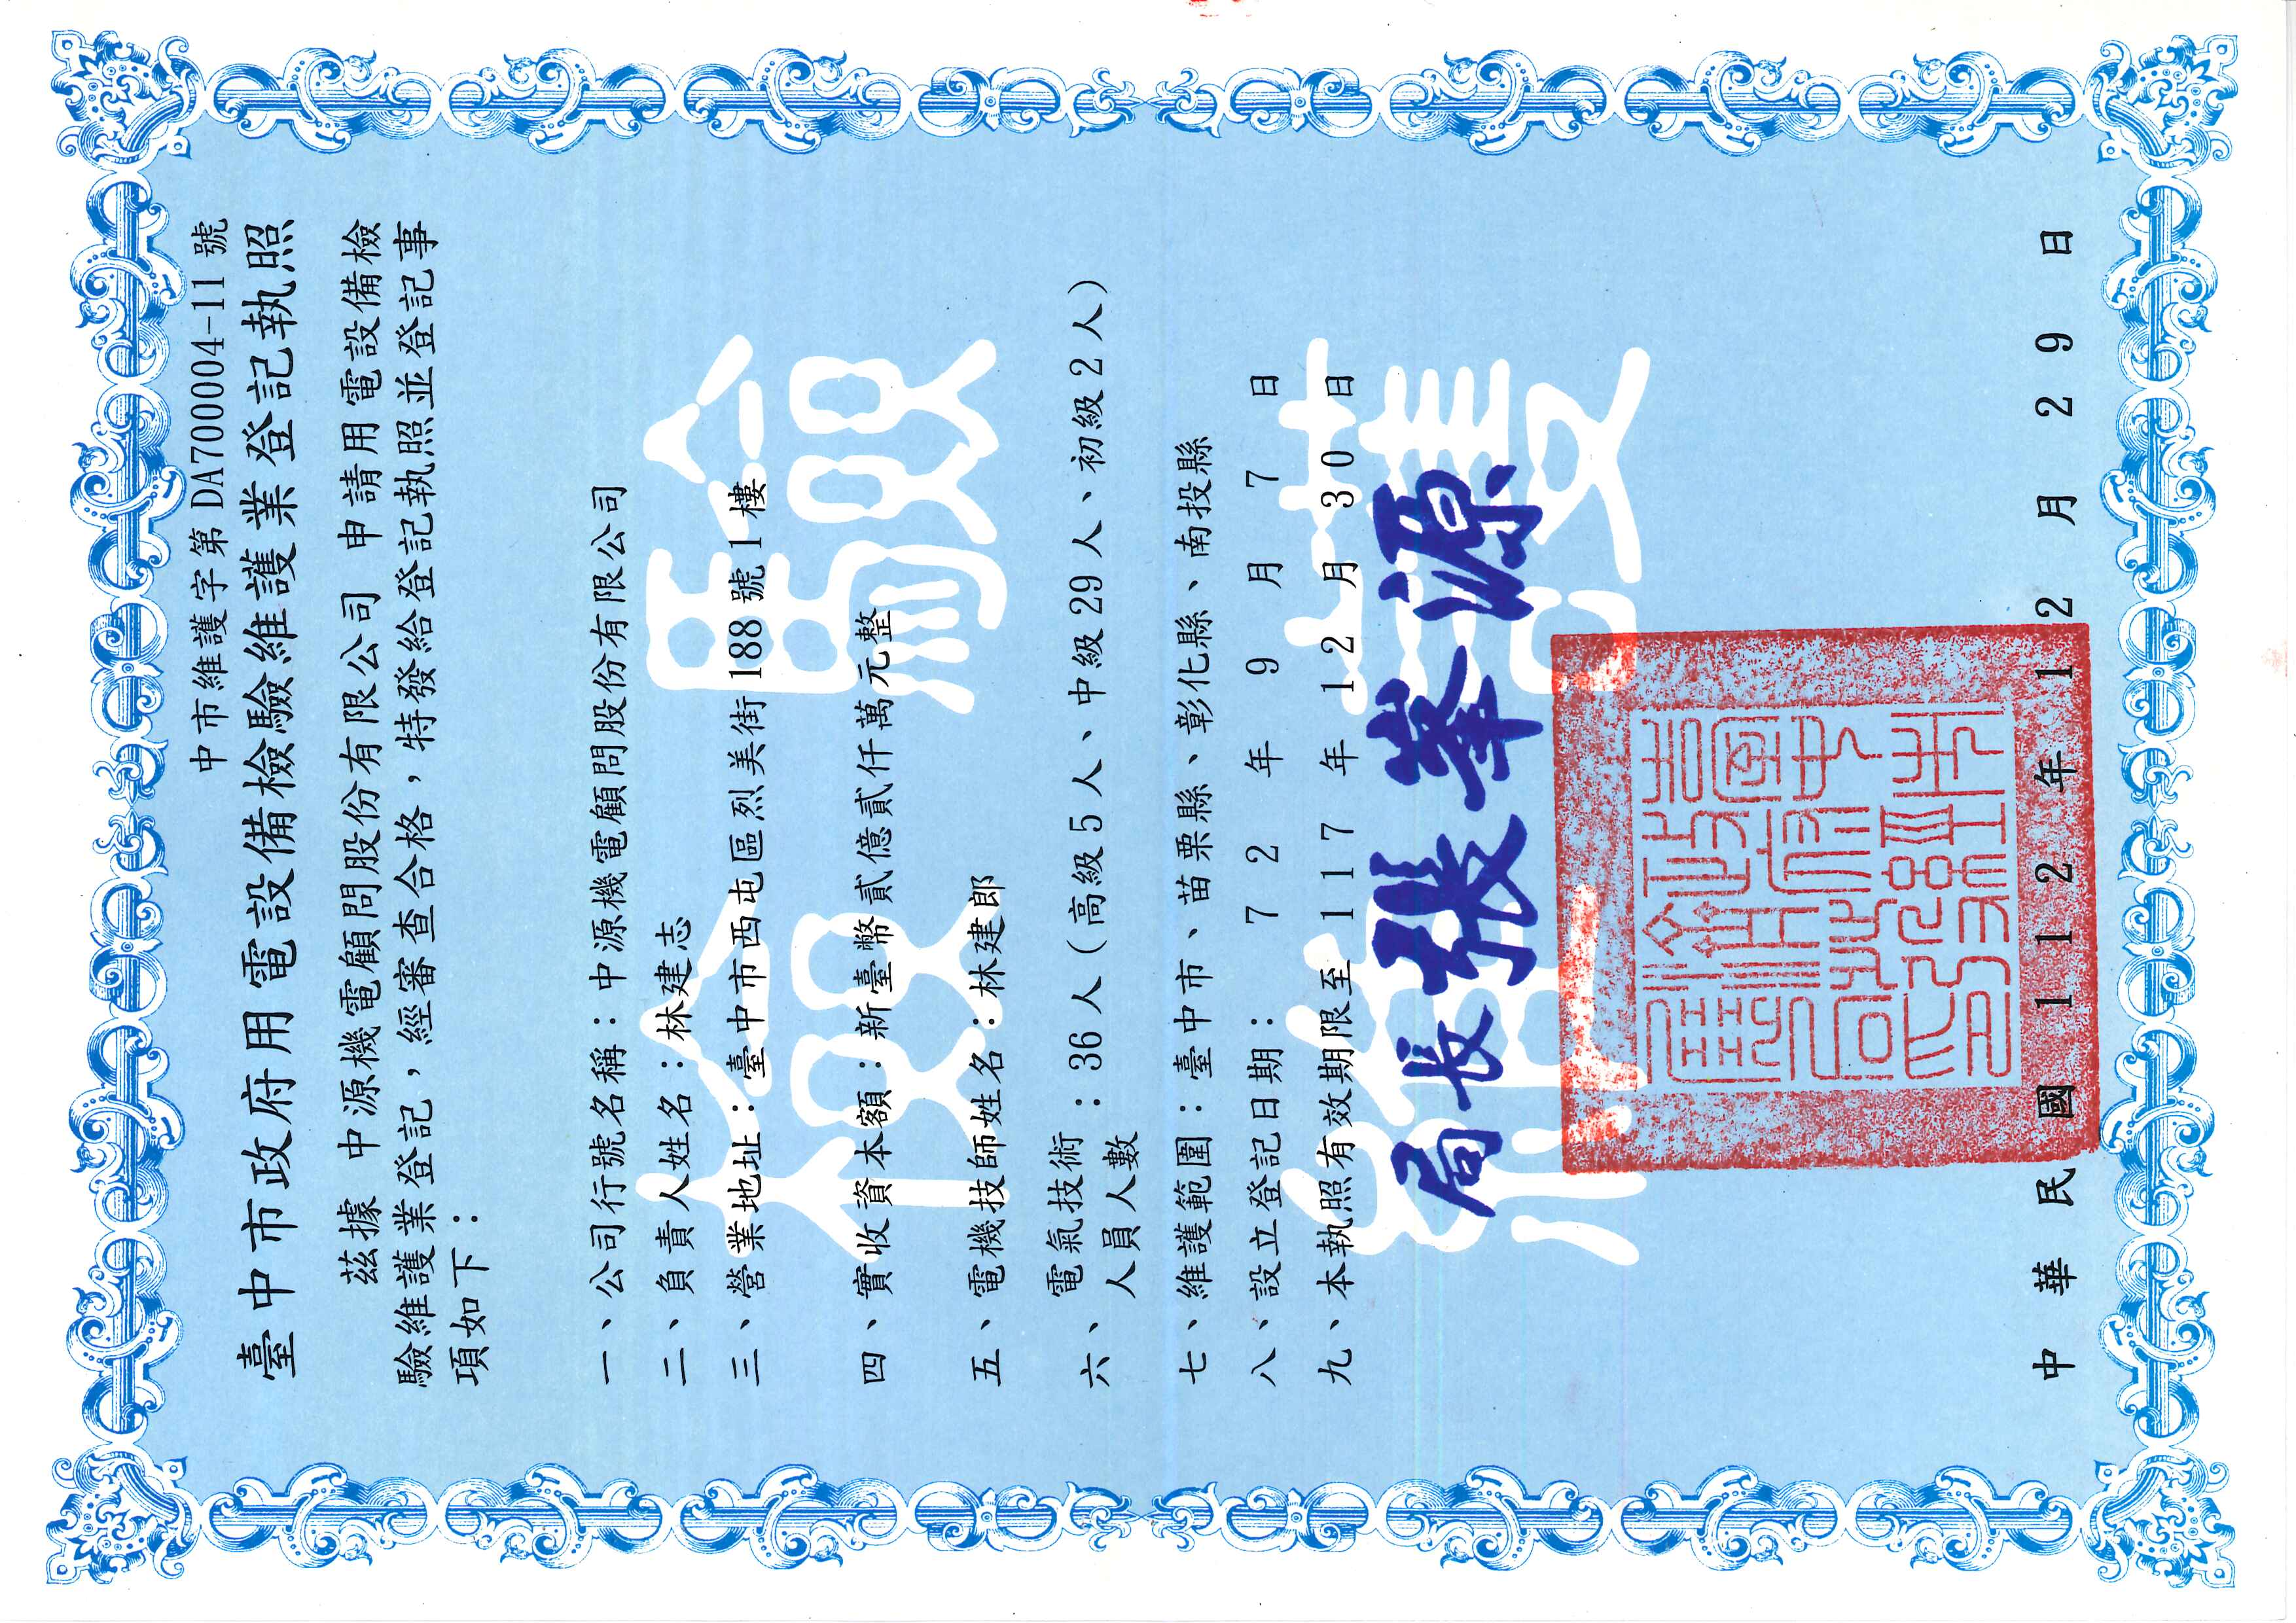 中市維護字第DA700004-11號
臺中市政府用電設備檢驗維護業登記執照
茲據 中源機電顧問股份有限公司 申請用電設備檢
驗維護業登記，經審查合格，特發給登記執照並登記事
項如下：
一、公司行號名稱：中源機電顧問股份有限公司
二、負責人姓名：林建志
三、營業地址：臺中市西屯區烈美街188號1樓
四、實收資本額：新臺幣貳億貳仟萬元整
五、電機技師姓名：林建郎
六、電氣技術人員人數：36人（高級5人、中級29人、初級2人）
七、維護範圍：臺中市、苗栗縣、彰化縣、南投縣
八、設立登記日期：72年9月7日
九、本執照有效期限至117年12月30日
局長張峯源
中華民國112年12月29日
檢驗維護